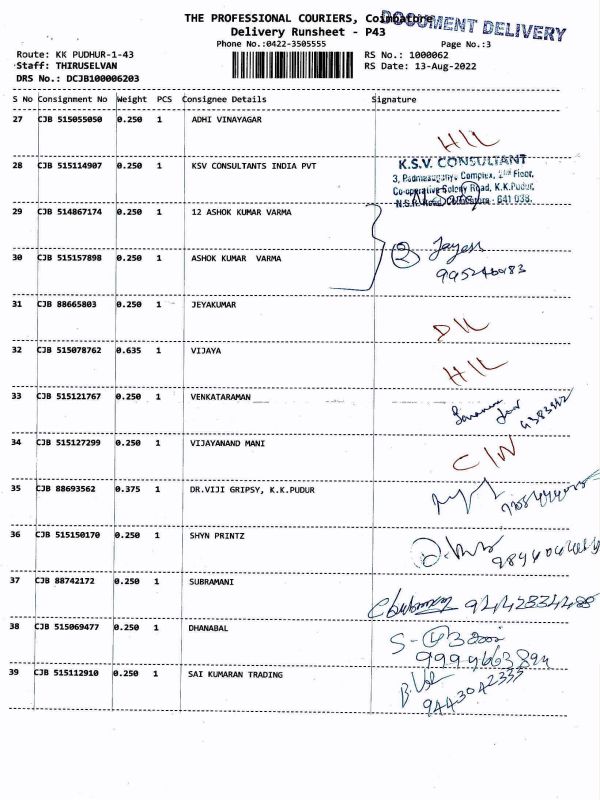 THE PROFESSIONAL COURIERS, Coimbatore
DOCUMENT DELIVERY
Delivery Runsheet - P43
Phone No.:0422-3505555 Page No.:3
Route: KK PUDHUR-1-43 RS No.: 1000062
Staff: THIRUSELVAN RS Date: 13-Aug-2022
DRS No.: DCJB100006203
S No Consignment No Weight PCS Consignee Details Signature
27 CJB 515055050 0.250 1 ADHI VINAYAGAR
H/L
28 CJB 515114907 0.250 1 KSV CONSULTANTS INDIA PVT
K.S.V. CONSULTANT
3, Complex, 2nd Floor,
Co-operative Colony Road, K.K.Pudur,
641 038.
29 CJB 514867174 0.250 1 12 ASHOK KUMAR VARMA
30 CJB 515157898 0.250 1 ASHOK KUMAR VARMA
2 Jayesh
31 CJB 88665803 0.250 1 JEYAKUMAR
D/L
32 CJB 515078762 0.635 1 VIJAYA
H/L
33 CJB 515121767 0.250 1 VENKATARAMAN
34 CJB 515127299 0.250 1 VIJAYANAND MANI
C/W
35 CJB 88693562 0.375 1 DR.VIJI GRIPSY, K.K.PUDUR
36 CJB 515150170 0.250 1 SHYN PRINTZ
37 CJB 88742172 0.250 1 SUBRAMANI
38 CJB 515069477 0.250 1 DHANABAL
39 CJB 515112910 0.250 1 SAI KUMARAN TRADING
9443042333